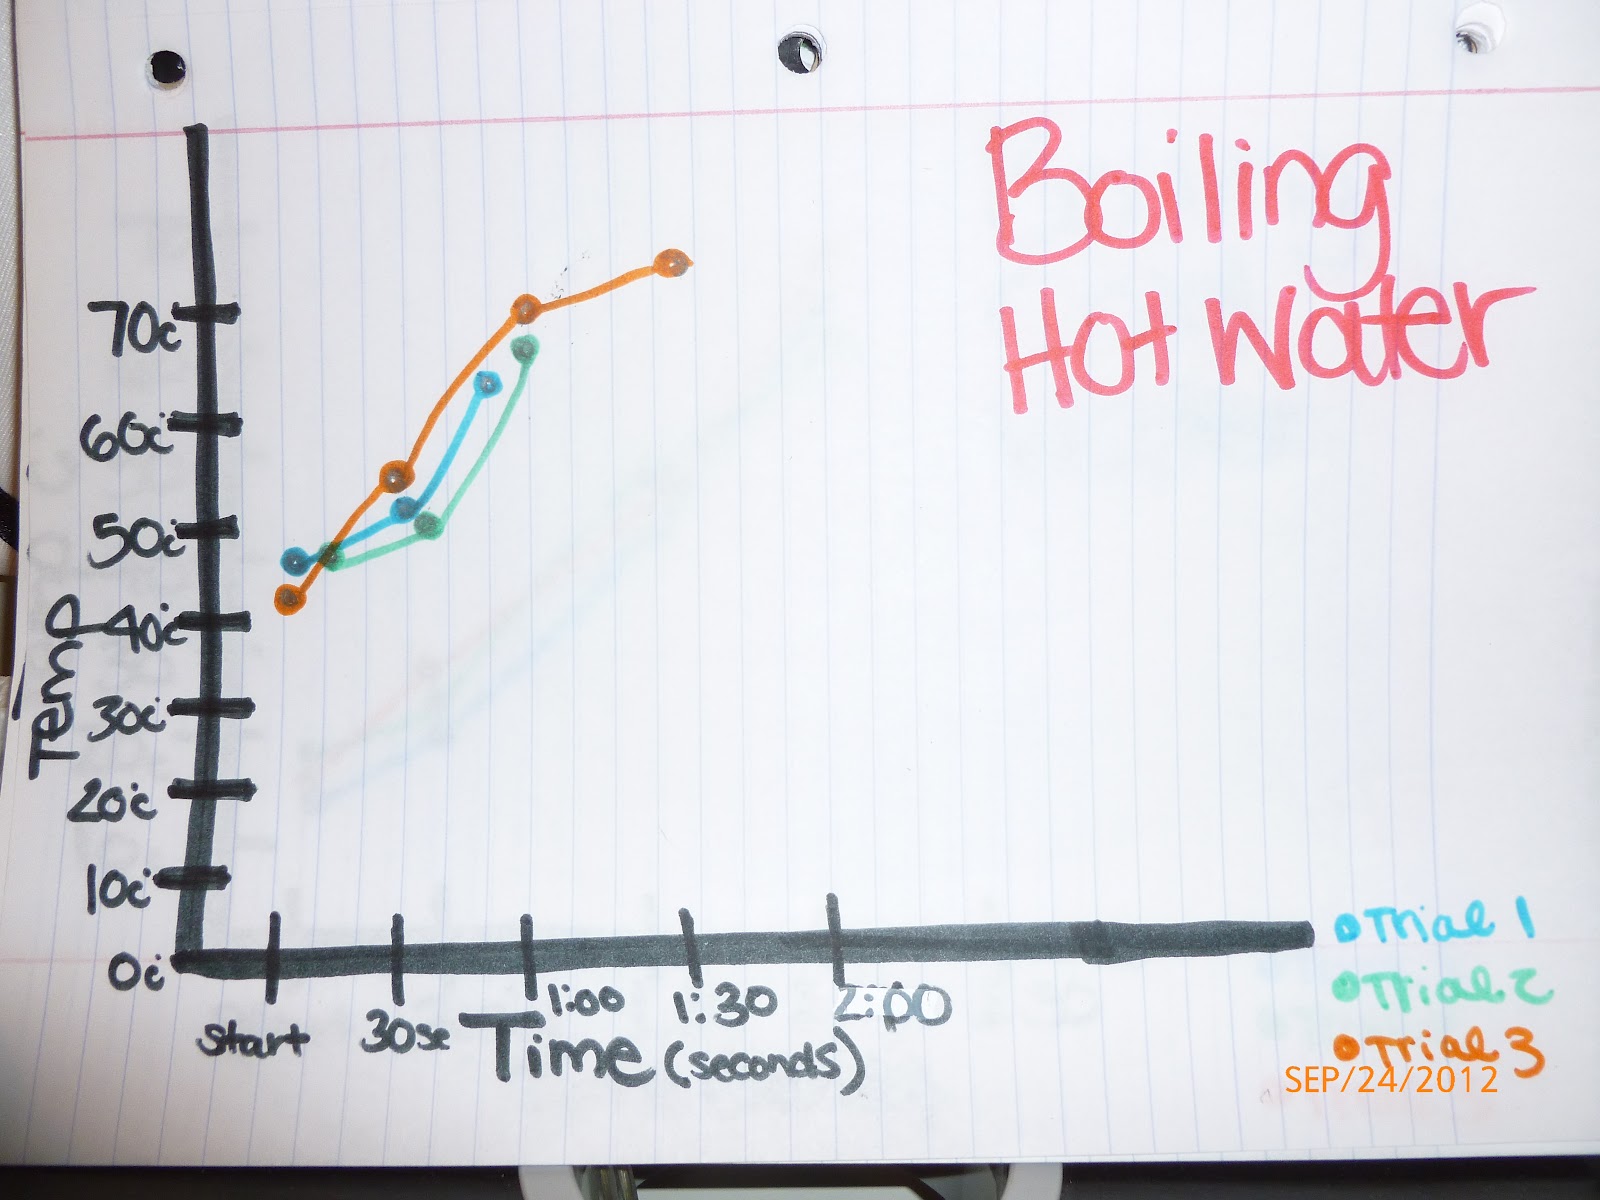 Boiling
Hot Water
70c
60c
50c
40c
30c
20c
10c
0c
Temp
start
30se
1:00
1:30
2:00
Time (seconds)
Trial 1
Trial 2
Trial 3
SEP/24/2012